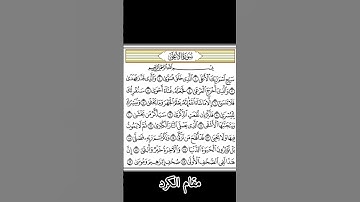 سُورَةُ الأَعْلَىٰ
بِسْمِ اللَّهِ الرَّحْمَٰنِ الرَّحِيمِ
سَبِّحِ ٱسْمَ رَبِّكَ ٱلْأَعْلَى ١ ٱلَّذِي خَلَقَ فَسَوَّىٰ ٢ وَٱلَّذِي قَدَّرَ فَهَدَىٰ
٣ وَٱلَّذِيٓ أَخْرَجَ ٱلْمَرْعَىٰ ٤ فَجَعَلَهُۥ غُثَآءً أَحْوَىٰ ٥ سَنُقْرِئُكَ
فَلَا تَنسَىٰٓ ٦ إِلَّا مَا شَآءَ ٱللَّهُ إِنَّهُۥ يَعْلَمُ ٱلْجَهْرَ وَمَا يَخْفَىٰ ٧ وَنُيَسِّرُكَ
لِلْيُسْرَىٰ ٨ فَذَكِّرْ إِن نَّفَعَتِ ٱلذِّكْرَىٰ ٩ سَيَذَّكَّرُ مَن يَخْشَىٰ ١٠
وَيَتَجَنَّبُهَا ٱلْأَشْقَى ١١ ٱلَّذِي يَصْلَى ٱلنَّارَ ٱلْكُبْرَىٰ ١٢ ثُمَّ لَا يَمُوتُ
فِيهَا وَلَا يَحْيَىٰ ١٣ قَدْ أَفْلَحَ مَن تَزَكَّىٰ ١٤ وَذَكَرَ ٱسْمَ رَبِّهِۦ فَصَلَّىٰ ١٥
بَلْ تُؤْثِرُونَ ٱلْحَيَوٰةَ ٱلدُّنْيَا ١٦ وَٱلْأَخِرَةُ خَيْرٌ وَأَبْقَىٰٓ ١٧
إِنَّ هَٰذَا لَفِي ٱلصُّحُفِ ٱلْأُولَىٰ ١٨ صُحُفِ إِبْرَٰهِيمَ وَمُوسَىٰ ١٩
مقام الكرد